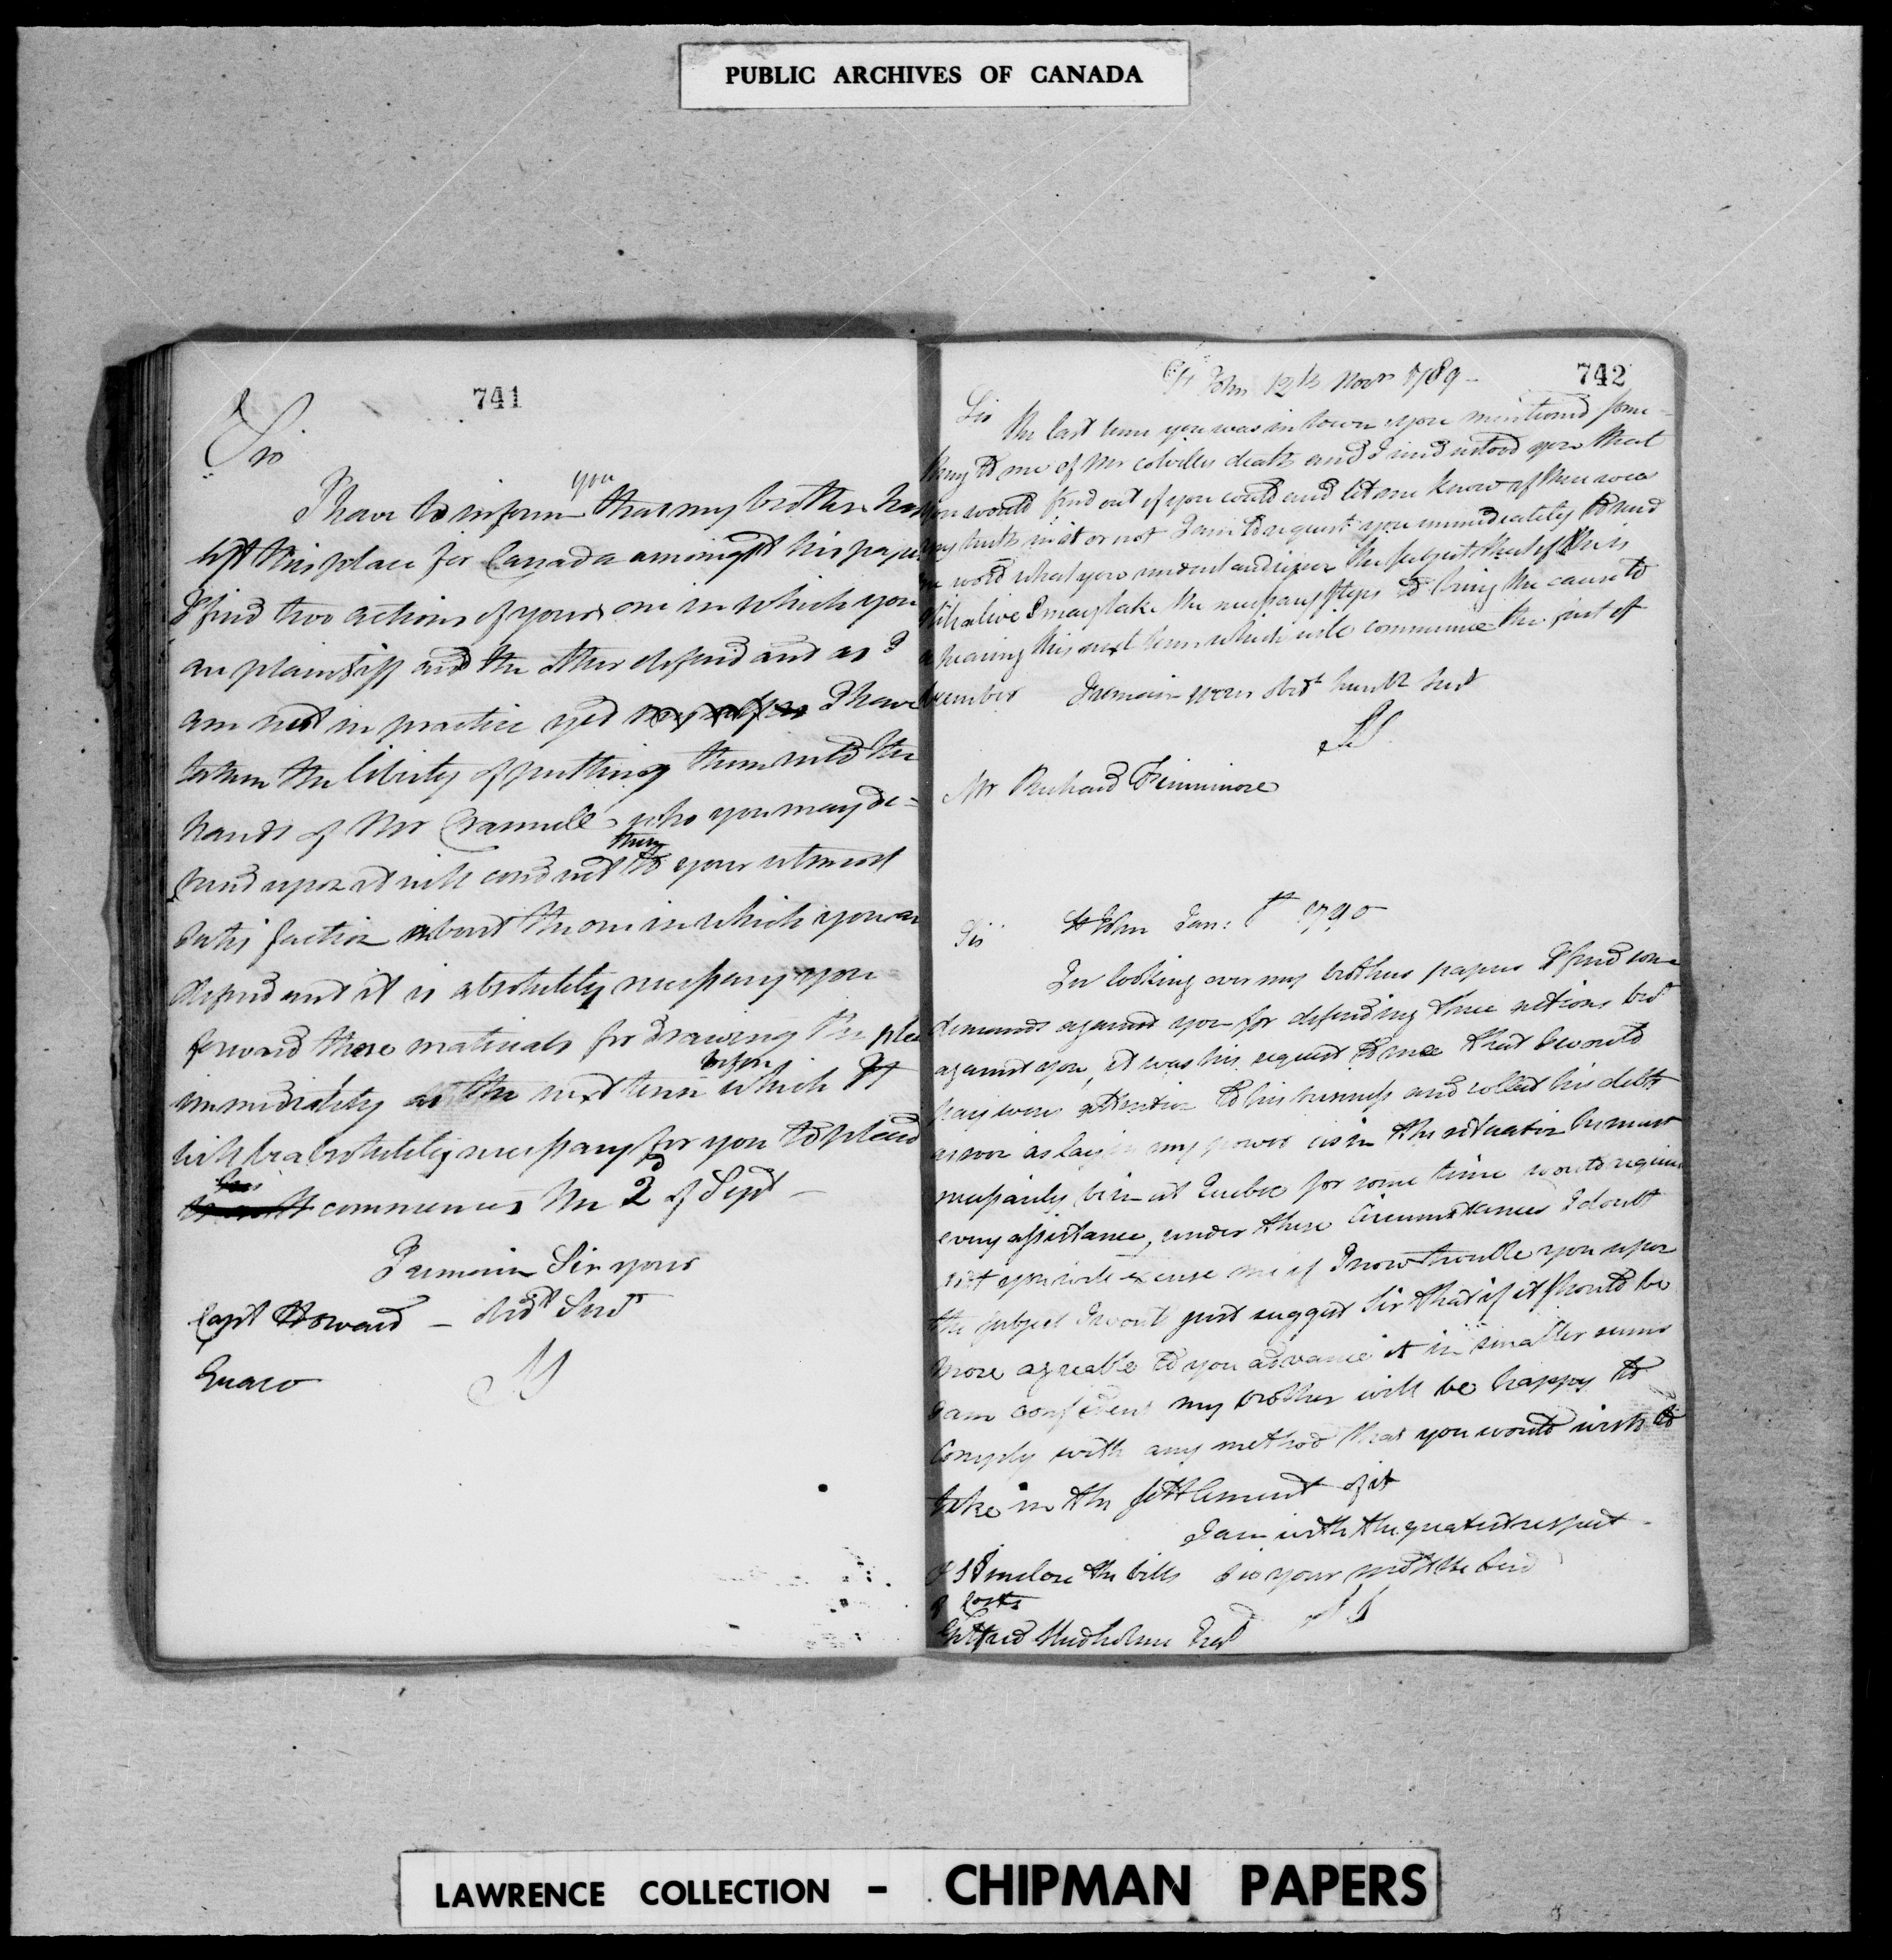 PUBLIC ARCHIVES OF CANADA
741
Sir
I have to inform you that my brother has
left this place for Canada amongst his papers
I find two actions of yours one in which you
are plaintiff and the other defendant as I
am not in practice yet I have
taken the liberty of putting them into the
hands of Mr Crannell who you may de=
pend upon it will conduct them to your utmost
satisfaction about the one in which you are
defendant it is absolutely necessary you
forward those materials for drawing the plea
immediately as the next term before which it
will be absolutely necessary for you to plead
commences the 2d of Sept —
I remain Sir your
Capt Howard — obdt Servt
Quaco
742
St John 12th Novr 1789 —
Sir
The last time you was in town you mentioned some=
thing to me of Mr Colvilles death and I understood you that
you would find out if you could and let me know if there was
any truth in it or not I am to request you immediately to send
me word what you understand upon the subject that if he is
still alive I may take the necessary steps to bring the cause to
a hearing this next term which will commence the first of
December I remain your obdt humble Servt
Mr Richard Fennimore
Sir St John Jan: th 1790
In looking over my brothers papers I find some
demands against you for defending three actions brot
against you, it was his request to me that I would
pay some attention to his business and collect his debts
as soon as lay in my power as in the situation he must
necessarily be in at Quebec for some time would require
every assistance, under these circumstances I doubt
not you will excuse me if I now trouble you upon
the subject I would just suggest Sir that if it should be
more agreable to you advance it in smaller sums
I am confident my brother will be happy to
comply with any method that you would wish to
take in the settlement of it
I am with the greatest respect
I inclose the bills Sir your most
of costs
Gilfred Studholme Esqr
LAWRENCE COLLECTION - CHIPMAN PAPERS